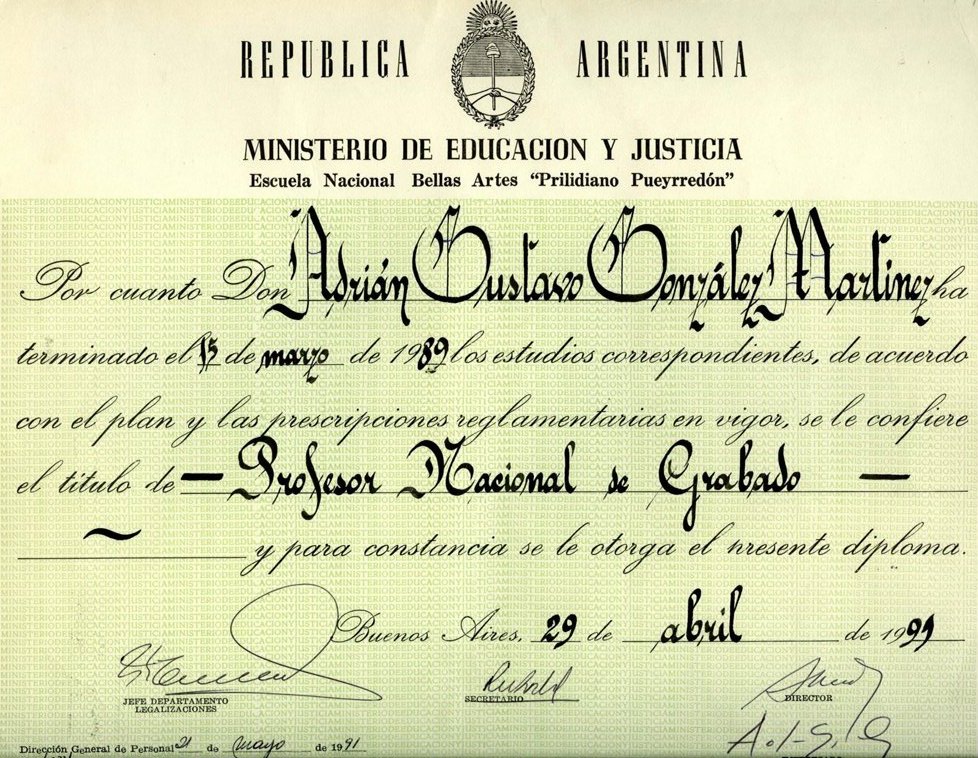 REPUBLICA ARGENTINA
MINISTERIO DE EDUCACION Y JUSTICIA
Escuela Nacional Bellas Artes "Prilidiano Pueyrredón"
Por cuanto Don Adrián Gustavo González Martínez ha
terminado el 15 de marzo de 1989 los estudios correspondientes, de acuerdo
con el plan y las prescripciones reglamentarias en vigor, se le confiere
el titulo de — Profesor Nacional de Grabado —
~ y para constancia se le otorga el presente diploma.
Buenos Aires, 29 de abril de 1991
JEFE DEPARTAMENTO
LEGALIZACIONES
SECRETARIO
DIRECTOR
Dirección General de Personal 21 de mayo de 1991